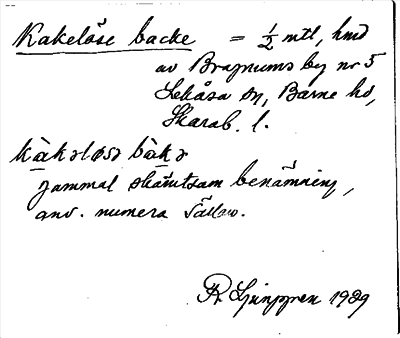 Kakelöse backe = ½ mtl, hmd
av Bragnums by nr 5
Lekåsa sn, Barne hd,
Skarab. l.
kàkəløsə bàkə
gammal skämtsam benämning,
anv. numera sällan.
R. Ljunggren 1929